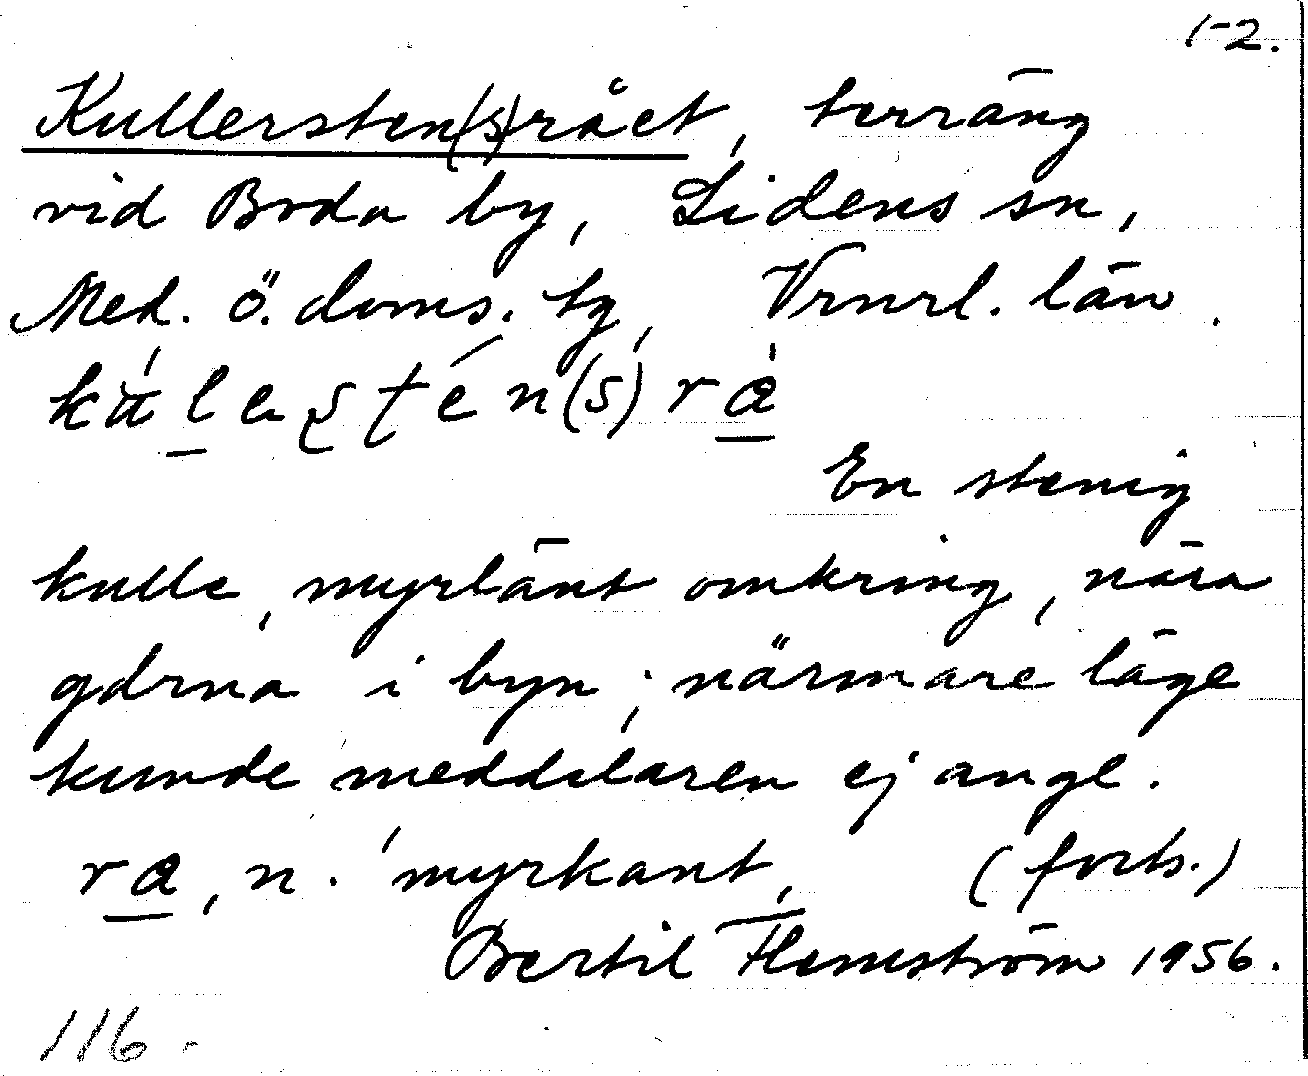 1-2.
Kullersten(s)rået, terräng
vid Boda by, Lidens sn,
Med. ö. doms. tg, Vrnrl. län.
En stenig
kulle, myrlänt omkring, nära
gdrna i byn; närmare läge
kunde meddelaren ej ange.
ra, n. 'myrkant, (forts.)
Bertil Flemström 1956.
116.